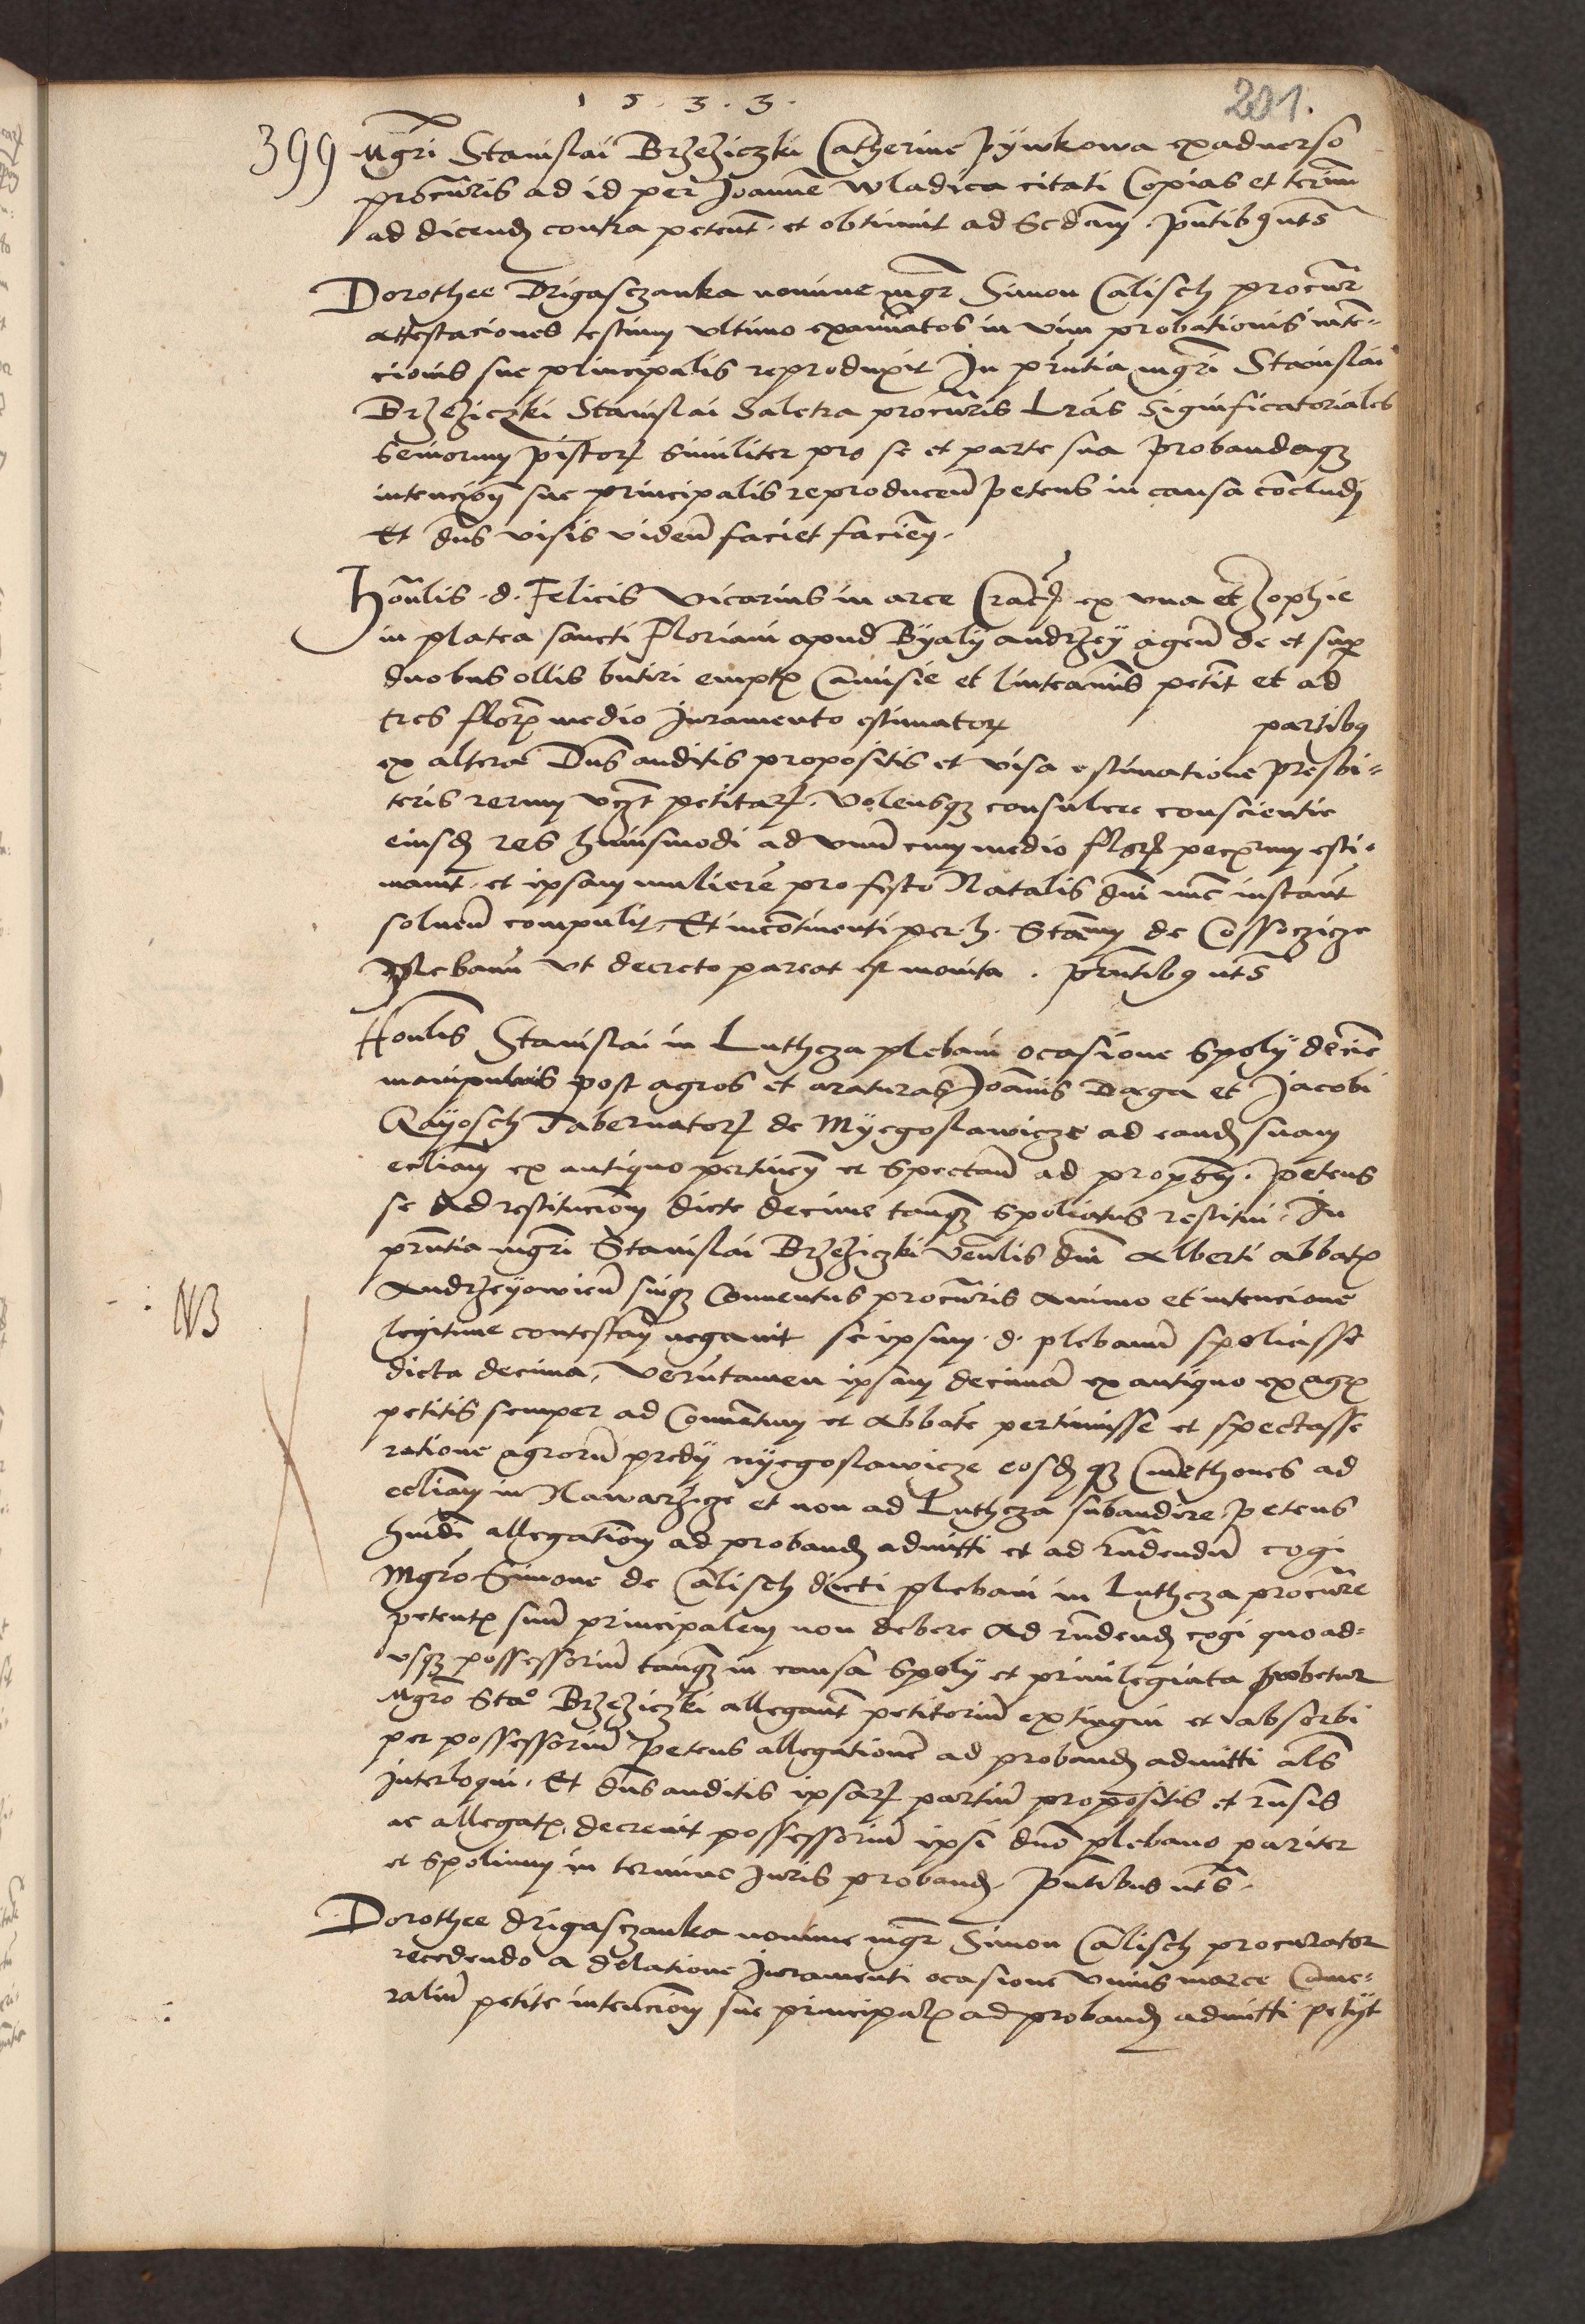 1 5 . 3 . 3 .
201.
399 Mgri Stanislai Brzeziczki Catherine Pywkowa exaduerso
procuris ad id per Joanne Wladica citati Copias et termm
ad dicend contra petent et obtinuit ad Scdam . pntibq uts
Dorothee Drigasczanka nomine mgr Simon Calisch procur
attestaciones testium vltimo examinatos in vim probationis inte=
cionis sue principalis reproduxit In pntia mgri Stanislai
Brzeziczki Stanislai Saletra procuris Lras Significatoriales
Seniorum pistor similiter pro se et parte sua Probandaqz
intencion sue principalis reproducen Petens in causa concludi
Et dns visis viden faciet facien .
Honlis . d . Felicis Vicarius in arce Crac ex vna et Zophie
in platea sancti Floriani apud Byaly andrzey agen de et sup
duobus ollis butiri empt Camisie et linteamis petit et ad
tres flor medio Juramento estimator partibq
ex altera Dns auditis propositis et visa estimatione presbi=
teris rerum vt petitar . Volensqz consulere conscientie
eiusd res huiusmodi ad vnu cum medio flor pecrum esti=
mauit . et ipsam muliere pro festo Natalis dni nunc instan
soluen compulit . Et incontinenti per . h . Stam de Cossoczicze
Plebanu vt decreto pareat est monita . pntibq uts
Honlis Stanislai in Luthcza plebani ocasione spoly decie
manipularis post agros et araturas Joanis Daga et Jacobi
Rayosch Tabernator de Myegoslawicze ad eand suam
eccliam ex antiquo pertinen et spectan ad propo . Petens
se ad restitucion dicte decime tanqz spoliatus restitui . In
pntia mgri Stanislai Brzeziczki Venlis dni Alberti abbat
Andrzeyowien suiqz Conuentus procuris animo et intencione
NB
legitime contestan negauit se ipsum . d . plebanu spoliasse
dicta decima, Verutamen ipsam decima ex antiquo ex agr
petitis semper ad Conuentum et Abbate pertinuisse et spectasse
ratione agroru predy nyegoslawicze eosd qz Cmethones ad
eccliam in Nawarzicze et non ad Luthcza subaudire . Petens
huidi allegation ad proband admitti et ad rndendu cogi
Mgro Simone de Calisch dicti plebani in Luthcza procure
petent suu principalem non debere ad rndend cogi quoad=
vsqz possessoriu tanqz in causa spoly et priuilegiata probetur
Mgro Stao Brzeziczki allegant petitoriu extingui et absorbi
per possessoriu Petens allegatione ad proband admitti als
Interloqui . Et dns auditis ipsar partiu propositis et rnsis
ac allegat . decreuit possessoriu ipsi dno plebano pariter
et spolium in termino Juris proband . Pntibus uts .
Dorothee drigasczanka nomine mgr Simon Calisch procurator
recedendo a delatione Juramenti ocasione vnius marce Came=
raliu petite intencion sue principal ad proband admitti petyt